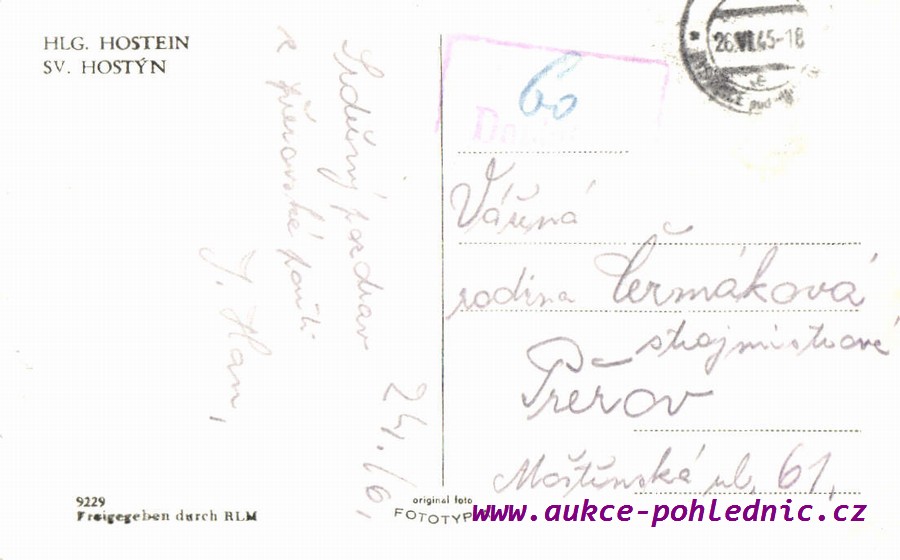 HLG. HOSTEIN
SV. HOSTÝN
Srdečný pozdrav
z přerovské pouti
J. Han,
24./6.
60
26.VI.45-18
Vážená
rodina Čermáková
strojmistrová
Přerov
Moštěnská ul. 61.
9229
Freigegeben durch RLM
original foto
FOTOTYP
www.aukce-pohlednic.cz